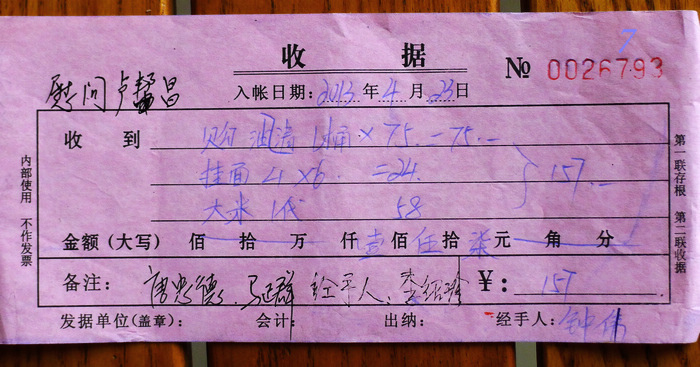 7
收 据
№ 0026793
慰问卢馨昌
入帐日期：2013年4月23日
收 到 购 油 1桶×75.－75.－
挂面 4×6 =24.
157.－
大米 1代 58
金额（大写） 佰 拾 万 仟壹佰伍拾柒元 角 分
备注： 唐忠德、马延群 经手人：李绍玲 ¥： 157
发据单位(盖章)： 会计： 出纳： 经手人：钟伟
内部使用 不作发票
第一联存根 第二联收据